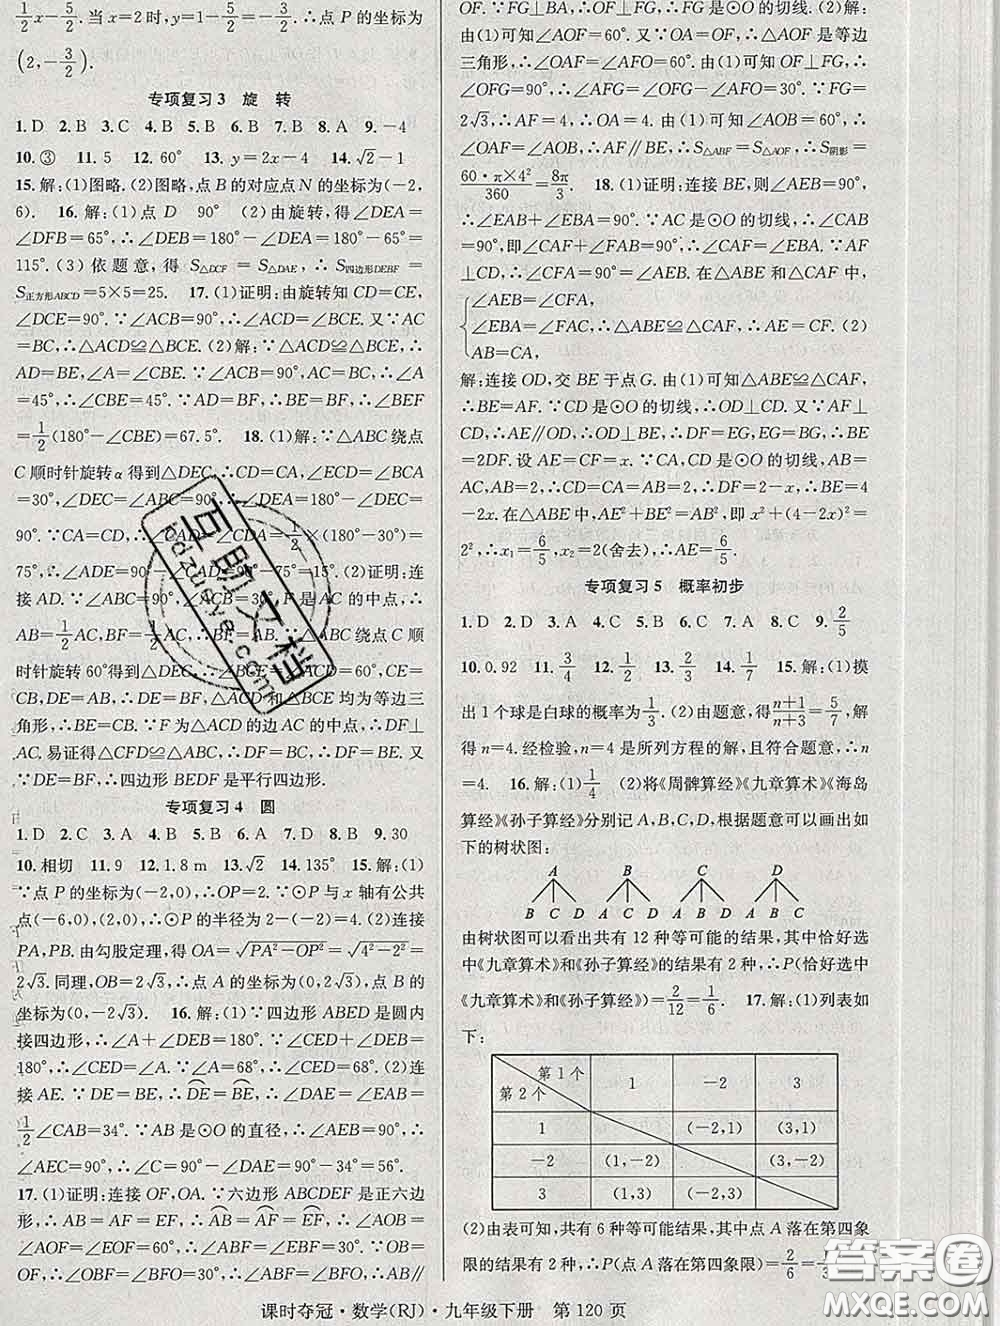 1/2x-5/2. 当 x=2 时, y=1-5/2=-3/2. ∴点 P 的坐标为
(2,-3/2).
专项复习3 旋 转
1.D 2.B 3.C 4.B 5.B 6.B 7.B 8.A 9.-4
10.③ 11.5 12.60° 13.y=2x-4 14.√2-1
15.解:(1)图略.(2)图略,点 B 的对应点 N 的坐标为(-2,
6). 16.解:(1)点 D 90° (2)由旋转,得∠DEA=
∠DFB=65°,∴∠DEB=180°-∠DEA=180°-65°=
115°.(3)依题意,得 S△DCF=S△DAE,∴S四边形DEBF=
S正方形ABCD=5×5=25. 17.(1)证明:由旋转知 CD=CE,
∠DCE=90°.∵∠ACB=90°,∴∠ACD=∠BCE.又∵AC
=BC,∴△ACD≌△BCE.(2)解:∵△ACD≌△BCE,∴
AD=BE,∠A=∠CBE.∵∠ACB=90°,AC=BC,∴∠A
=45°,∴∠CBE=45°.∵AD=BF,∴BE=BF,∴∠BEF
=1/2(180°-∠CBE)=67.5°. 18.(1)解:∵△ABC 绕点
C 顺时针旋转α得到△DEC,∴CD=CA,∠ECD=∠BCA
=30°,∠DEC=∠ABC=90°,∴∠DEA=180°-∠DEC=
90°.∵CD=CA,∴∠CAD=∠CDA=1/2×(180°-30°)
=75°,∴∠ADE=90°-∠CAD=90°-75°=15°.(2)证明:连
接 AD.∵∠ABC=90°,∠ACB=30°,F 是 AC 的中点,∴
AB=1/2AC,BF=1/2AC,∴AB=BF.∵△ABC 绕点 C 顺
时针旋转60°得到△DEC,∴∠BCE=∠ACD=60°,CE=
CB,DE=AB,∴DE=BF,△ACD 和△BCE 均为等边三
角形,∴BE=CB.∵F 为△ACD 的边 AC 的中点,∴DF⊥
AC.易证得△CFD≌△ABC,∴DF=BC,∴DF=BE.又
∵DE=BF,∴四边形 BEDF 是平行四边形.
专项复习4 圆
1.D 2.C 3.A 4.B 5.B 6.A 7.D 8.B 9.30
10.相切 11.9 12.1.8 m 13.√2 14.135° 15.解:(1)
∵点 P 的坐标为(-2,0),∴OP=2.∵⊙P 与 x 轴有公共
点(-6,0),(2,0),∴⊙P 的半径为 2-(-2)=4.(2)连接
PA,PB.由勾股定理,得 OA=√(PA²-OP²)=√(4²-2²)=
2√3.同理,OB=2√3,∴点 A 的坐标为(0,2√3),点 B 的
坐标为(0,-2√3). 16.解:(1)∵四边形 ABED 是圆内
接四边形,∴∠A+∠DEB=180°.∵∠CED+∠DEB=
180°,∴∠CED=∠A.∵∠A=68°,∴∠CED=68°.(2)连
接 AE.∵DE=BE,∴DE⌒=BE⌒,∴∠DAE=∠EAB=
1/2∠CAB=34°.∵AB 是⊙O 的直径,∴∠AEB=90°,
∴∠AEC=90°,∴∠C=90°-∠DAE=90°-34°=56°.
17.(1)证明:连接 OF,OA.∵六边形 ABCDEF 是正六边
形,∴AB=AF=EF,∴AB⌒=AF⌒=EF⌒,∴∠AOB=∠AOF
=∠EOF=60°,∴∠ABF=∠EBF=∠AFB=30°.∵OB=
OF,∴∠OFB=∠EBF=30°,∴∠ABF=∠OFB,∴AB∥
OF.∵FG⊥BA,∴OF⊥FG,∴FG 是⊙O 的切线.(2)解:
由(1)可知∠AOF=60°.又∵OA=OF,∴△AOF 是等边
三角形,∴∠OAF=∠AFO=60°.由(1)可知 OF⊥FG,∴
∠OFG=90°,∴∠AFG=90°-∠AFO=30°.∵FG=
2√3,∴AF=4,∴OA=4.由(1)可知∠AOB=60°=
∠OAF,∴AF∥BE,∴S△ABF=S△AOF,∴S阴影=
60·π×4²/360=8π/3. 18.(1)证明:连接 BE,则∠AEB=90°,
∴∠EAB+∠EBA=90°.∵AC 是⊙O 的切线,∴∠CAB
=90°,即∠CAF+∠EAB=90°,∴∠CAF=∠EBA.∵AF
⊥CD,∴∠CFA=90°=∠AEB.在△ABE 和△CAF 中,
{∠AEB=∠CFA,
∠EBA=∠FAC,∴△ABE≌△CAF,∴AE=CF.(2)
AB=CA,
解:连接 OD,交 BE 于点 G.由(1)可知△ABE≌△CAF,
∴BE=AF.∵CF 是⊙O 的切线,∴OD⊥CF.又∵AF⊥
CD,∴AE∥OD,∴OD⊥BE,∴DF=EG,EG=BG,∴BE=
2DF.设 AE=CF=x.∵CA,CD 是⊙O 的切线,AB=
AC,AB=2,∴CD=CA=AB=2,∴DF=2-x,∴BE=
4-2x.在Rt△ABE 中,AE²+BE²=AB²,即 x²+(4-2x)²=
2²,∴x₁=6/5,x₂=2(舍去),∴AE=6/5.
专项复习5 概率初步
1.D 2.A 3.C 4.C 5.B 6.D 7.C 8.C 9.2/5
10.0.92 11.3/4 12.1/2 13.2/3 14.1/7 15.解:(1)摸
出1个球是白球的概率为1/3.(2)由题意,得(n+1)/(n+3)=5/7,解
得 n=4.经检验,n=4 是所列方程的解,且符合题意,∴n
=4. 16.解:(1)1/4 (2)将《周髀算经》《九章算术》《海岛
算经》《孙子算经》分别记 A,B,C,D,根据题意可以画出如
下的树状图:
A B C D
B C D A C D A B D A B C
由树状图可以看出共有12种等可能的结果,其中恰好选
中《九章算术》和《孙子算经》的结果有2种,∴P(恰好选中
《九章算术》和《孙子算经》)=2/12=1/6. 17.解:(1)列表如
下:
第1个 第2个 1 -2 3
1 (-2,1) (3,1)
-2 (1,-2) (3,-2)
3 (1,3) (-2,3)
(2)由表可知,共有6种等可能结果,其中点 A 落在第四象
限的结果有2种,∴P(点 A 落在第四象限)=2/6=1/3.
课时夺冠·数学(RJ)·九年级下册 第 120 页
互助文档
hdzuoye.com
答案圈
MXQE.COM